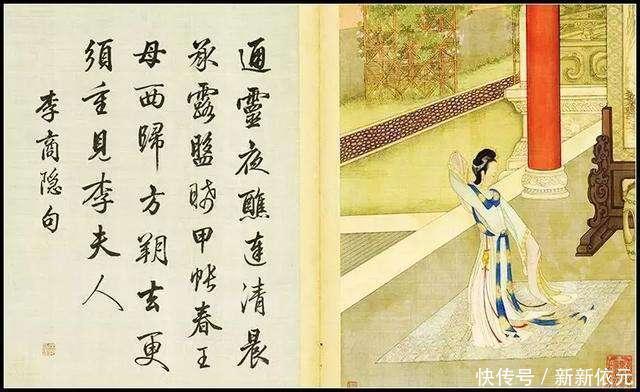 通靈夜醮達清晨
承露盤晞甲帳春王
母西歸方朔去更
須重見李夫人
李商隐句
快传号 / 新新依元